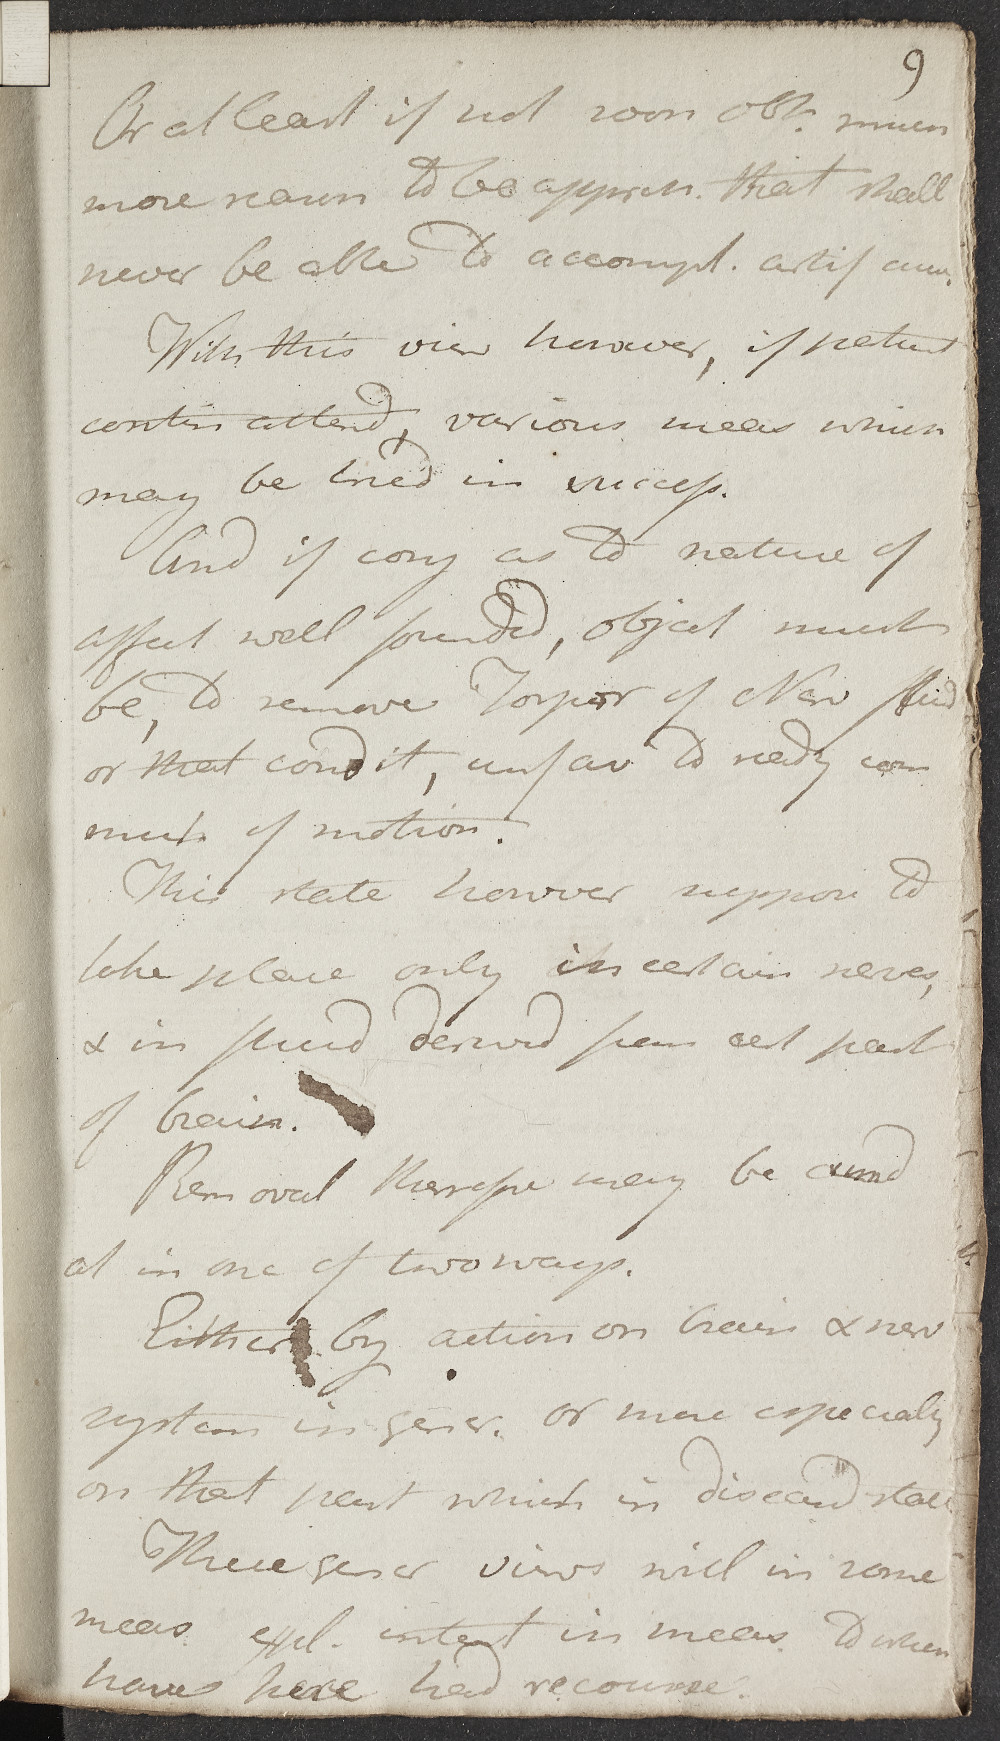 9
Or at least if not soon obt. much
more reason to be appreh. that shall
never be able to accompl. artif
With this view however, if patient
contin attend, various meas which
may be tried in success.
And if conj as to nature of
affect well founded, object must
be, to remove Torpor of Nerv fluid
or that condit, unfav to ready com
munic of motion.
This state however suppose to
take place only in certain nerves,
& in fluid derived from cert part
of brain.
Removal therefore may be aimd
at in one of two ways.
Either by action on brain & nerv
system in gener. or more especialy
on that part which in diseased state
These gener views will in some
meas expl. intent in meas. to which
have here had recourse.